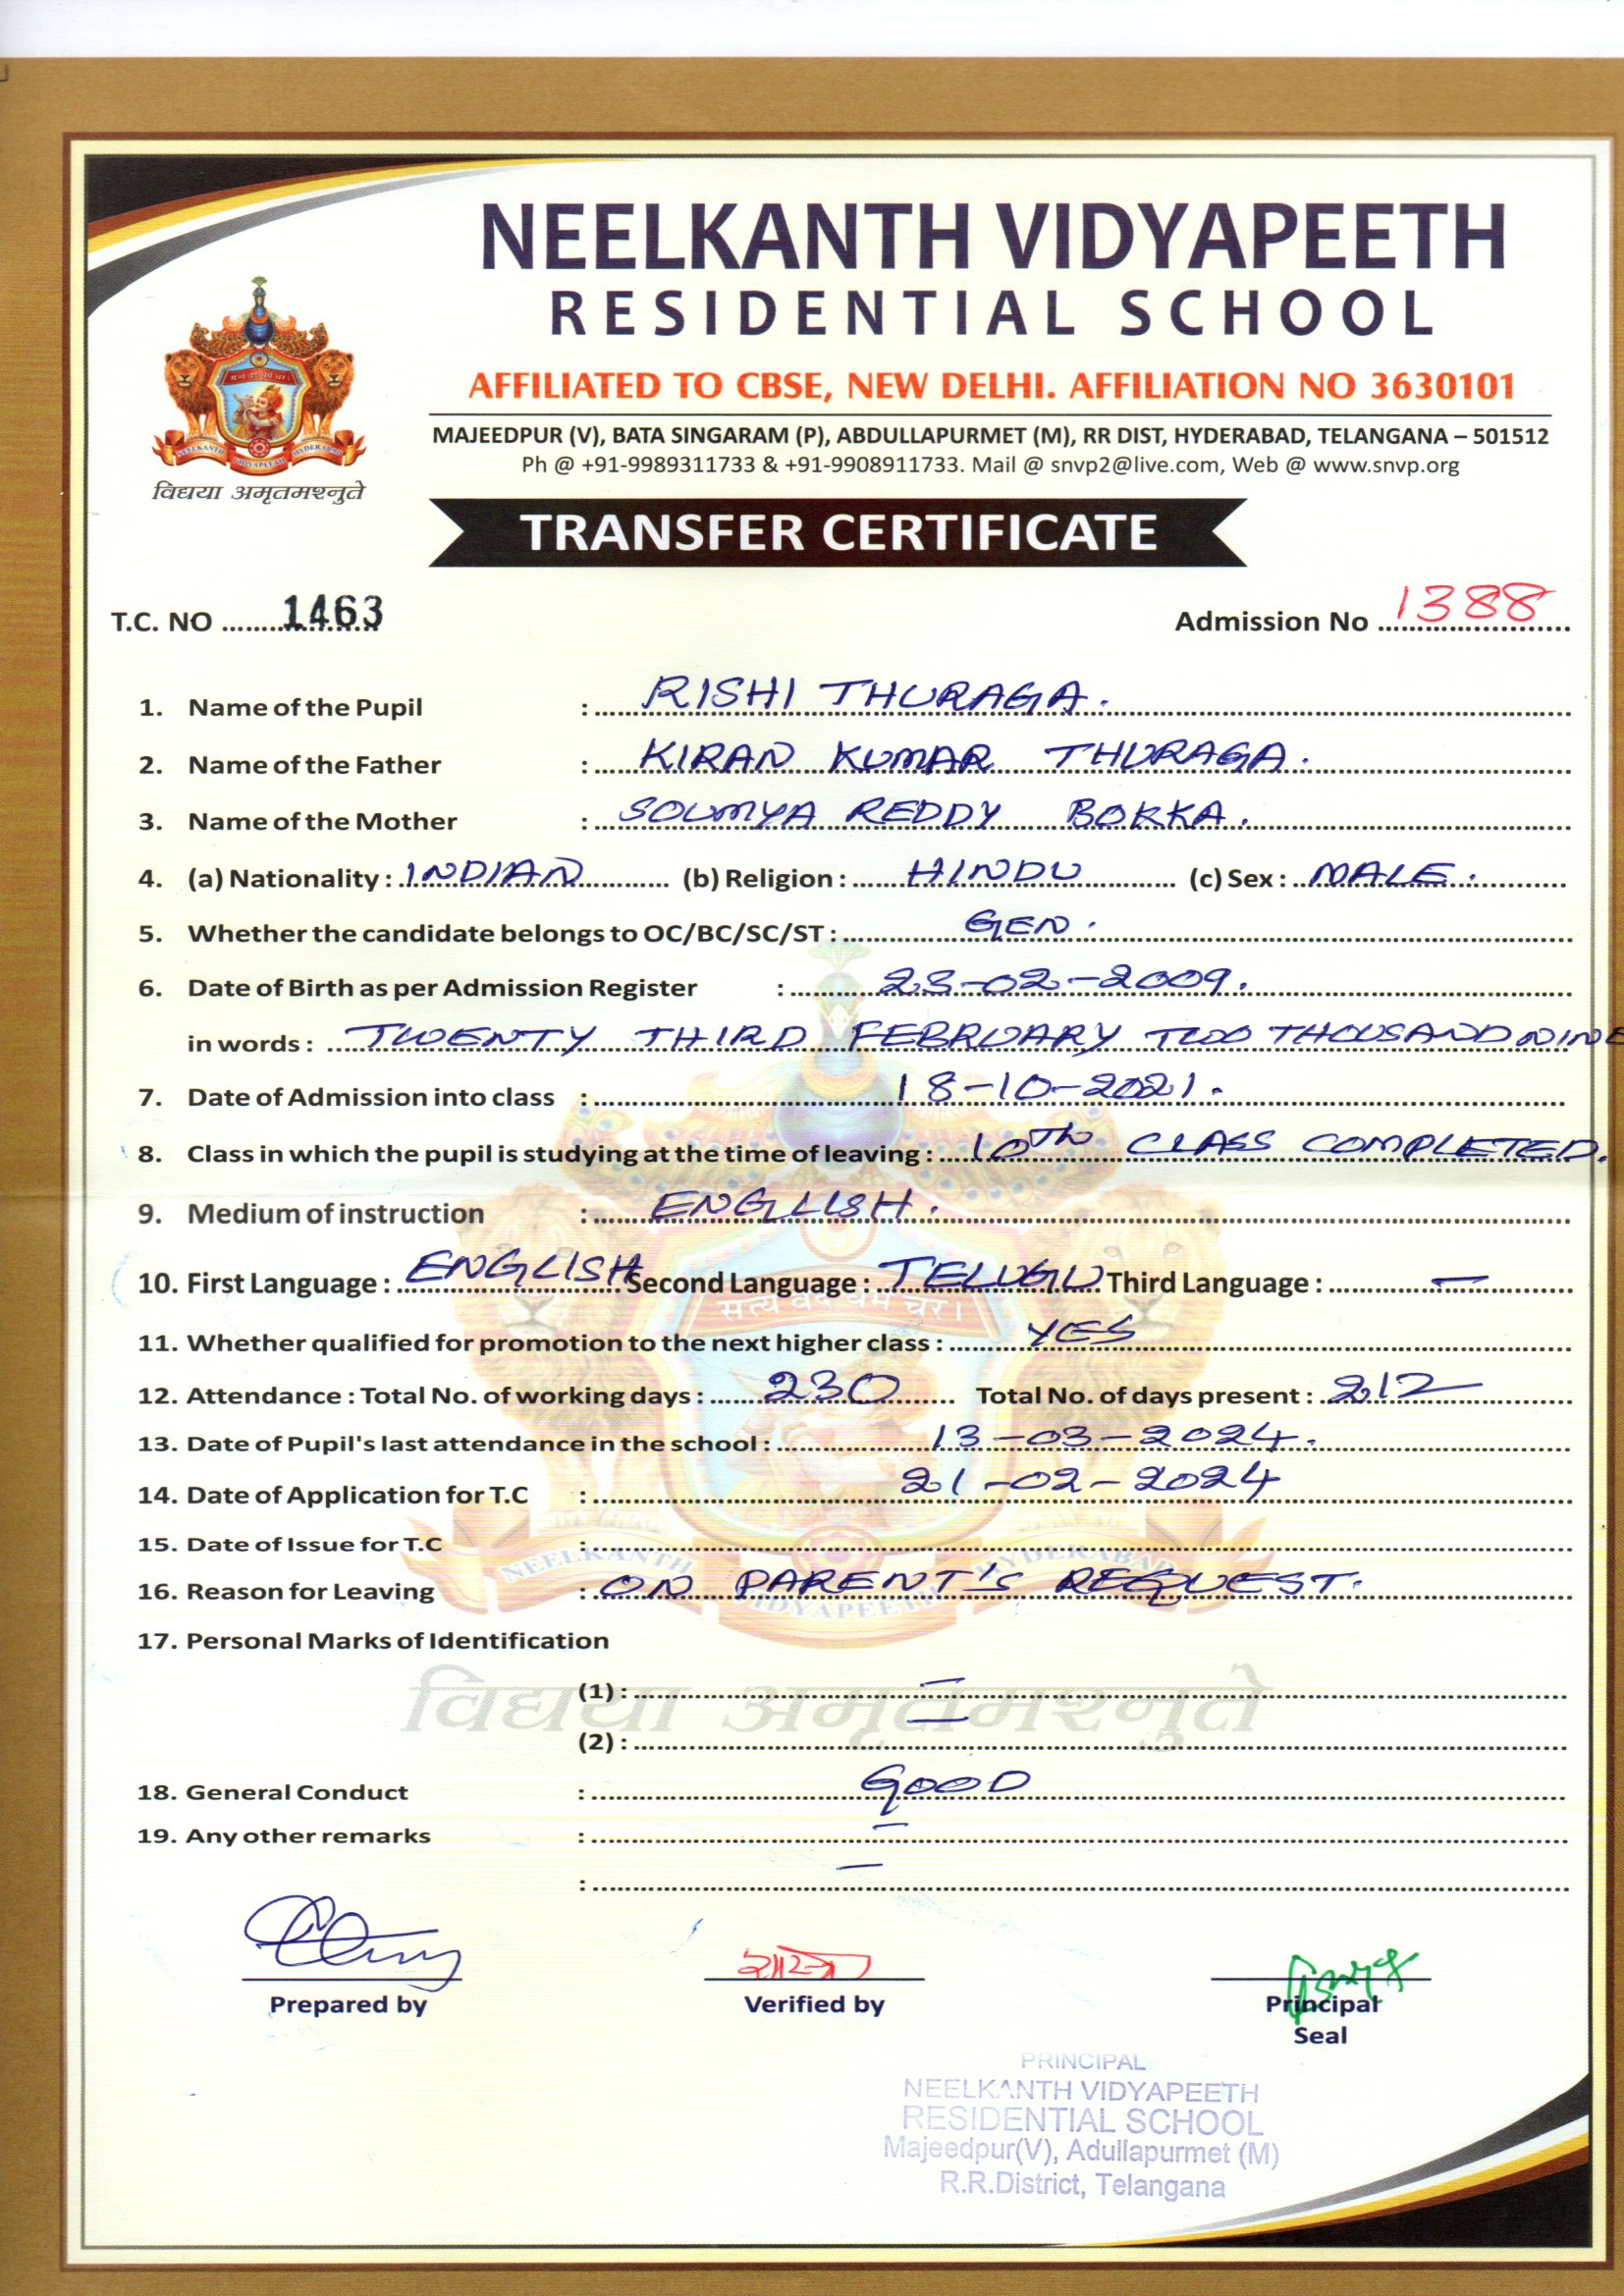 NEELKANTH VIDYAPEETH
RESIDENTIAL SCHOOL
AFFILIATED TO CBSE, NEW DELHI. AFFILIATION NO 3630101
MAJEEDPUR (V), BATA SINGARAM (P), ABDULLAPURMET (M), RR DIST, HYDERABAD, TELANGANA – 501512
Ph @ +91-9989311733 & +91-9908911733. Mail @ snvp2@live.com, Web @ www.snvp.org
NEELKANTH VIDYAPEETH HYDERABAD
विद्यया अमृतमश्नुते
TRANSFER CERTIFICATE
T.C. NO ........1463 Admission No 1388
1. Name of the Pupil : RISHI THURAGA.
2. Name of the Father : KIRAN KUMAR THURAGA.
3. Name of the Mother : SOUMYA REDDY BOKKA.
4. (a) Nationality : INDIAN (b) Religion : HINDU (c) Sex : MALE.
5. Whether the candidate belongs to OC/BC/SC/ST : GEN.
6. Date of Birth as per Admission Register : 23-02-2009.
in words : TWENTY THIRD FEBRUARY TWO THOUSAND NINE
7. Date of Admission into class : 18-10-2021.
8. Class in which the pupil is studying at the time of leaving : 10th CLASS COMPLETED.
9. Medium of instruction : ENGLISH.
10. First Language : ENGLISH Second Language : TELUGU Third Language : —
सत्यं वद धर्मं चर।
11. Whether qualified for promotion to the next higher class : YES
12. Attendance : Total No. of working days : 230 Total No. of days present : 212
13. Date of Pupil's last attendance in the school : 13-03-2024.
14. Date of Application for T.C : 21-02-2024
15. Date of Issue for T.C :
NEELKANTH VIDYAPEETH HYDERABAD
16. Reason for Leaving : ON PARENT'S REQUEST.
17. Personal Marks of Identification
(1) : —
विद्यया अमृतमश्नुते
(2) : —
18. General Conduct : GOOD
19. Any other remarks : —
: —
Prepared by Verified by Principal
Seal
PRINCIPAL
NEELKANTH VIDYAPEETH
RESIDENTIAL SCHOOL
Majeedpur(V), Adullapurmet (M)
R.R.District, Telangana